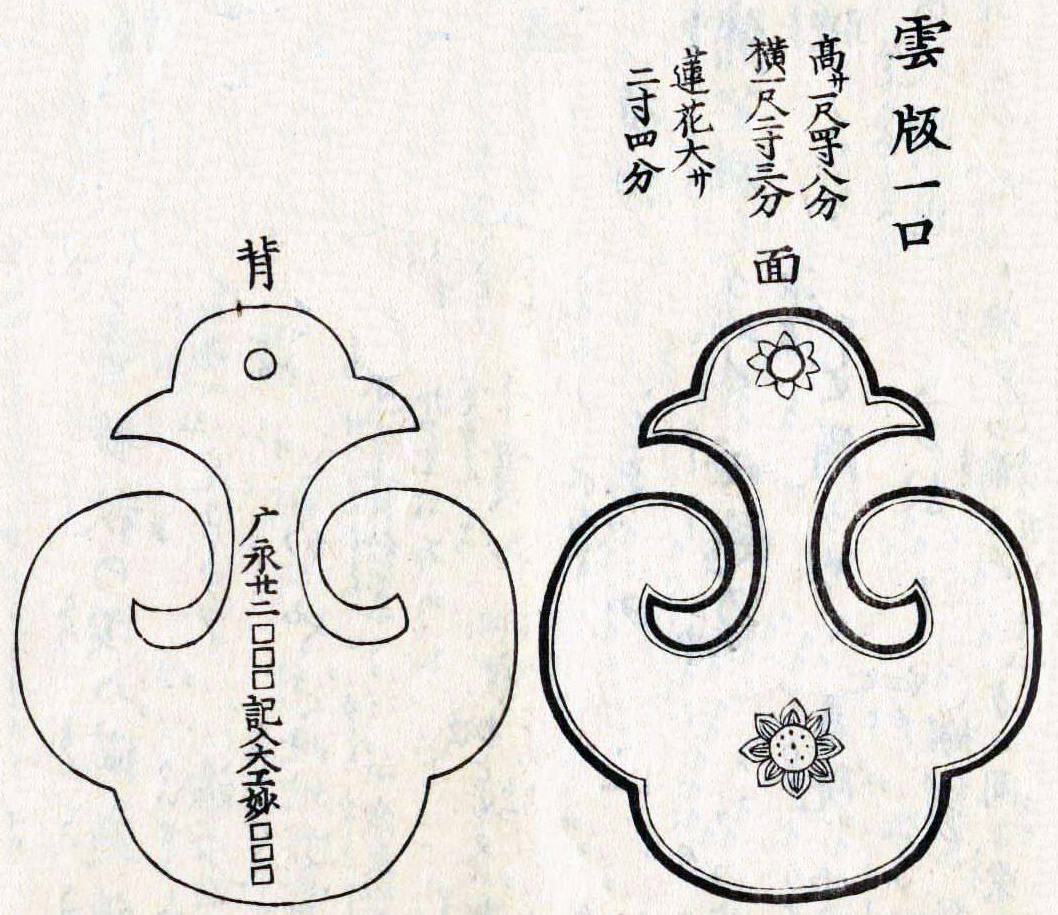 雲版一口
髙サ一尺四寸八分
横一尺二寸三分
蓮花大サ
二寸四分
面
背
广永廿二□□□記入大工妙□□□